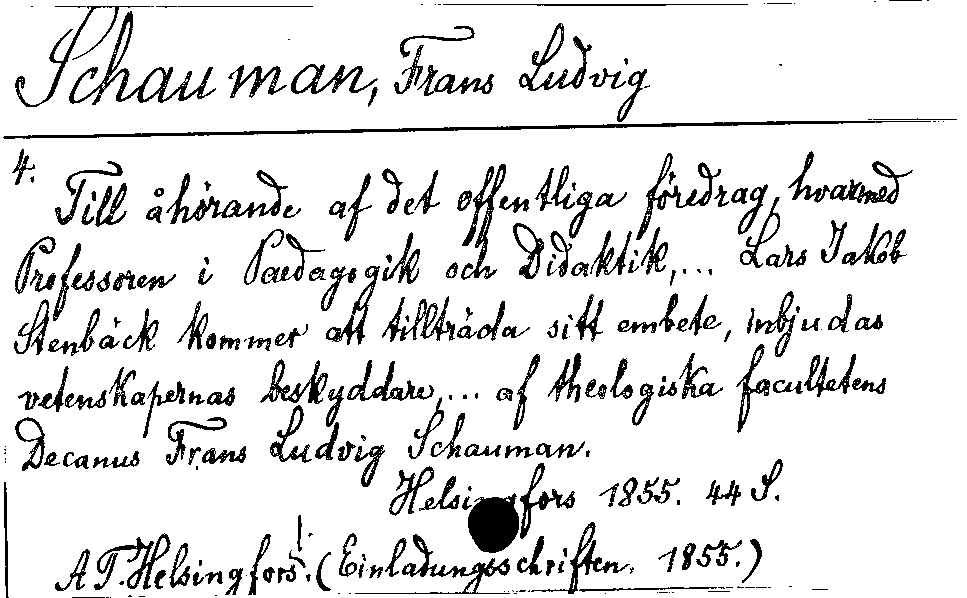 Schauman, Frans Ludvig
4.
Till åhörande af det offentliga föredrag, hvarmed
Professoren i Paedagogik och Didaktik,... Lars Jakob
Stenbäck kommer att tillträda sitt embete, inbjudas
vetenskapernas beskyddare,... af theologiska facultetens
Decanus Frans Ludvig Schauman.
Helsingfors 1855. 44 S.
A T. Helsingfors. (Einladungsschriften. 1855.)